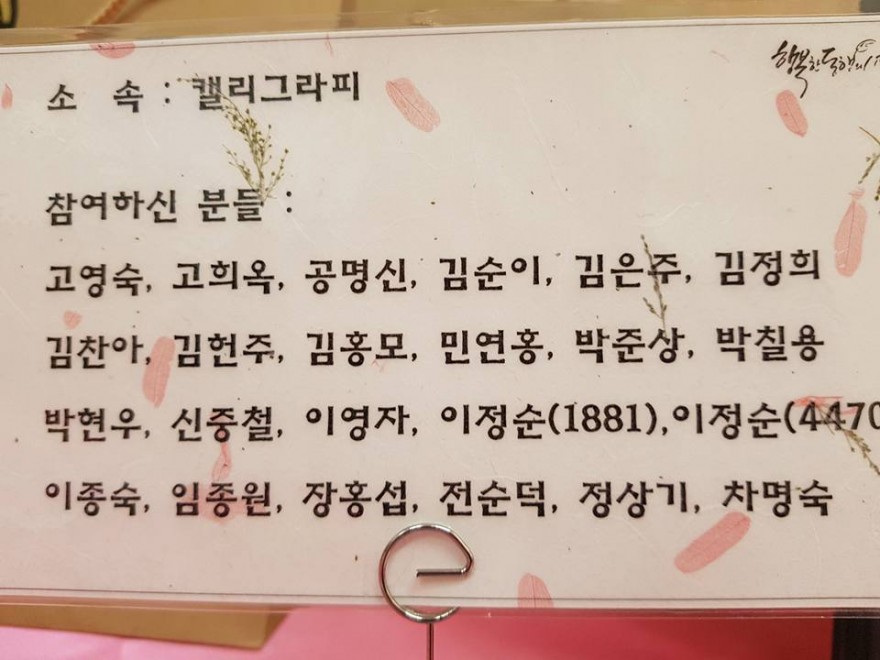 행복한
소 속 : 캘리그라피
참여하신 분들 :
고영숙, 고희옥, 공명신, 김순이, 김은주, 김정희
김찬아, 김헌주, 김홍모, 민연홍, 박준상, 박칠용
박현우, 신중철, 이영자, 이정순(1881),이정순(4470
이종숙, 임종원, 장홍섭, 전순덕, 정상기, 차명숙